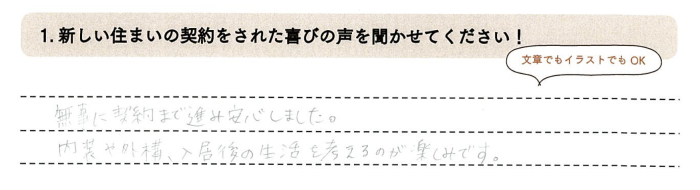 1. 新しい住まいの契約をされた喜びの声を聞かせてください！
文章でもイラストでもOK
無事に契約まで進み安心しました。
内装や外構、入居後の生活を考えるのが楽しみです。